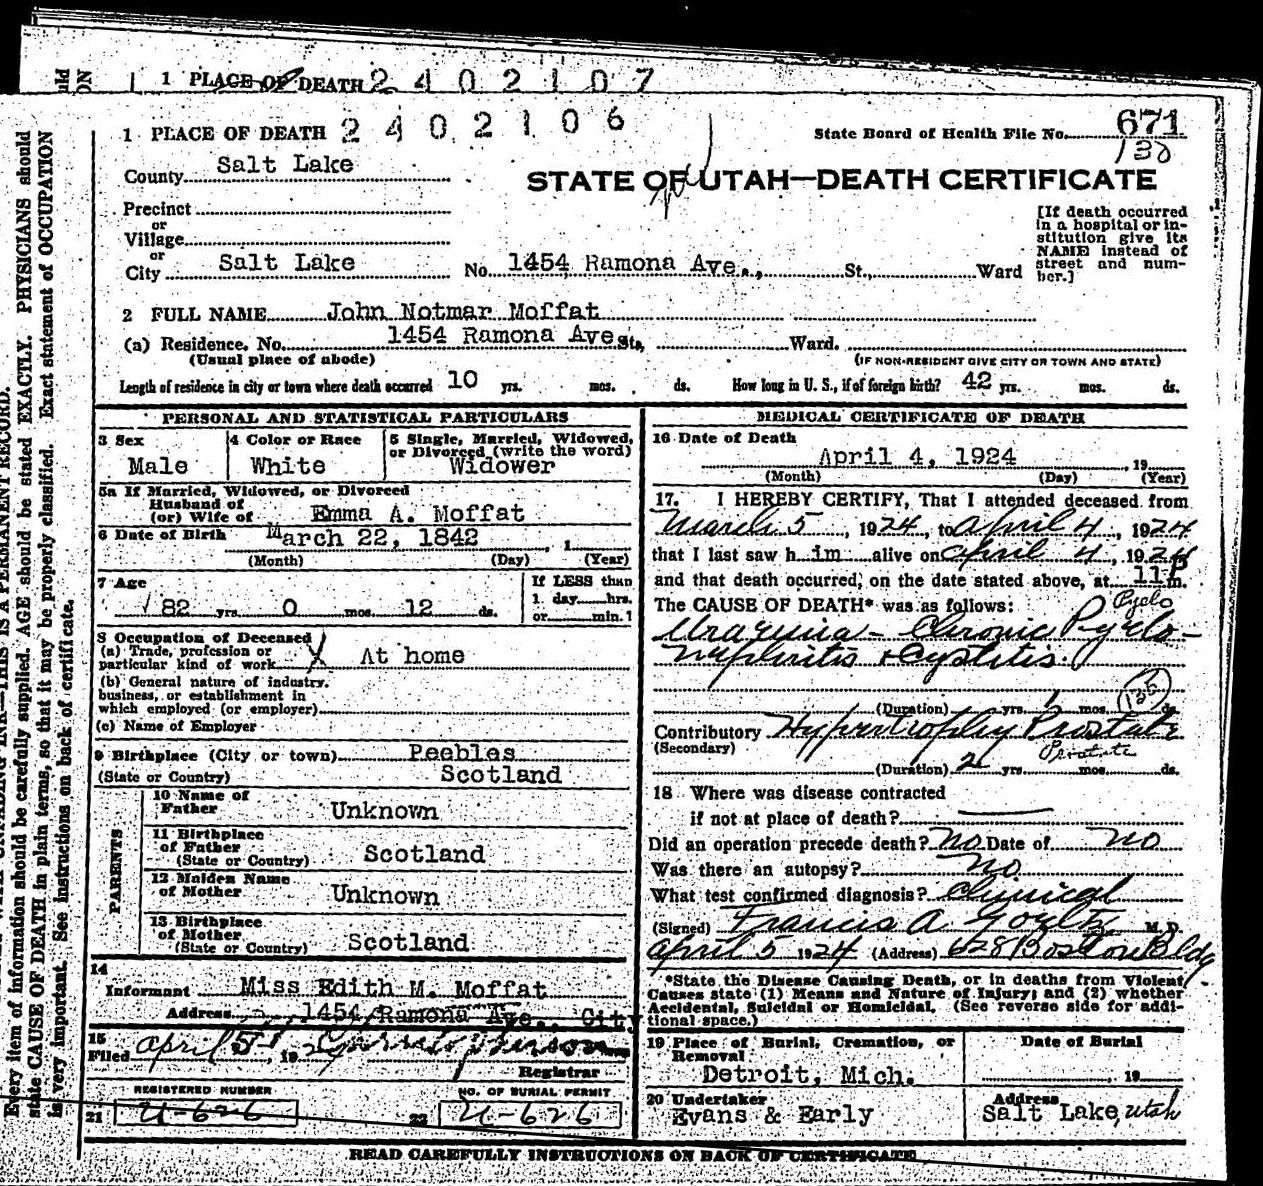 1 PLACE OF DEATH 2402107
1 PLACE OF DEATH 2402106
State Board of Health File No. 671
130
County Salt Lake
STATE OF UTAH—DEATH CERTIFICATE
Precinct
or
Village
or
City Salt Lake No. 1454 Ramona Ave., St., Ward
[If death occurred
in a hospital or in-
stitution give its
NAME instead of
street and num-
ber.]
2 FULL NAME John Notmar Moffat
(a) Residence, No. 1454 Ramona Ave St., Ward.
(Usual place of abode) (IF NON-RESIDENT GIVE CITY OR TOWN AND STATE)
Length of residence in city or town where death occurred 10 yrs. mos. ds. How long in U. S., if of foreign birth? 42 yrs. mos. ds.
PERSONAL AND STATISTICAL PARTICULARS
3 Sex
Male
4 Color or Race
White
5 Single, Married, Widowed,
or Divorced (write the word)
Widower
5a If Married, Widowed, or Divorced
Husband of
(or) Wife of Emma A. Moffat
6 Date of Birth March 22, 1842, 1
(Month) (Day) (Year)
7 Age
82 yrs. 0 mos. 12 ds.
If LESS than
1 day hrs.
or min. ?
8 Occupation of Deceased
(a) Trade, profession or
particular kind of work At home
(b) General nature of industry,
business, or establishment in
which employed (or employer)
(c) Name of Employer
9 Birthplace (City or town) Peebles
(State or Country) Scotland
PARENTS
10 Name of
Father Unknown
11 Birthplace
of Father
(State or Country) Scotland
12 Maiden Name
of Mother Unknown
13 Birthplace
of Mother
(State or Country) Scotland
14
Informant Miss Edith M. Moffat
Address 1454 Ramona Ave., City
15
Filed April 5, 19
Registrar
REGISTERED NUMBER
21 U-626
NO. OF BURIAL PERMIT
22 U-626
MEDICAL CERTIFICATE OF DEATH
16 Date of Death
April 4, 1924, 19
(Month) (Day) (Year)
17. I HEREBY CERTIFY, That I attended deceased from
March 5, 1924, to April 4, 1924
that I last saw him alive on April 4, 1924
and that death occurred, on the date stated above, at 11 P m.
The CAUSE OF DEATH* was as follows: Pyelo
Uraemia - Chronic Pyelo-
nephritis + Cystitis.
(Duration) yrs. 1 mos. ds.
135
Contributory Hypertrophy Prostate
(Secondary) Prostate
(Duration) 2 yrs. mos. ds.
18 Where was disease contracted
if not at place of death?
Did an operation precede death? No Date of No
Was there an autopsy? No
What test confirmed diagnosis? Clinical
(Signed) Francis A Goeltz M. D.
April 5 1924 (Address) 628 Boston Bldg
*State the Disease Causing Death, or in deaths from Violent
Causes state (1) Means and Nature of Injury; and (2) whether
Accidental, Suicidal or Homicidal. (See reverse side for addi-
tional space.)
19 Place of Burial, Cremation, or
Removal
Detroit, Mich.
Date of Burial
, 19
20 Undertaker
Evans & Early
Address
Salt Lake, Utah
READ CAREFULLY INSTRUCTIONS ON BACK OF CERTIFICATE
Every item of information should be carefully supplied. AGE should be stated EXACTLY. PHYSICIANS should
state CAUSE OF DEATH in plain terms, so that it may be properly classified. Exact statement of OCCUPATION
is very important. See instructions on back of certificate.